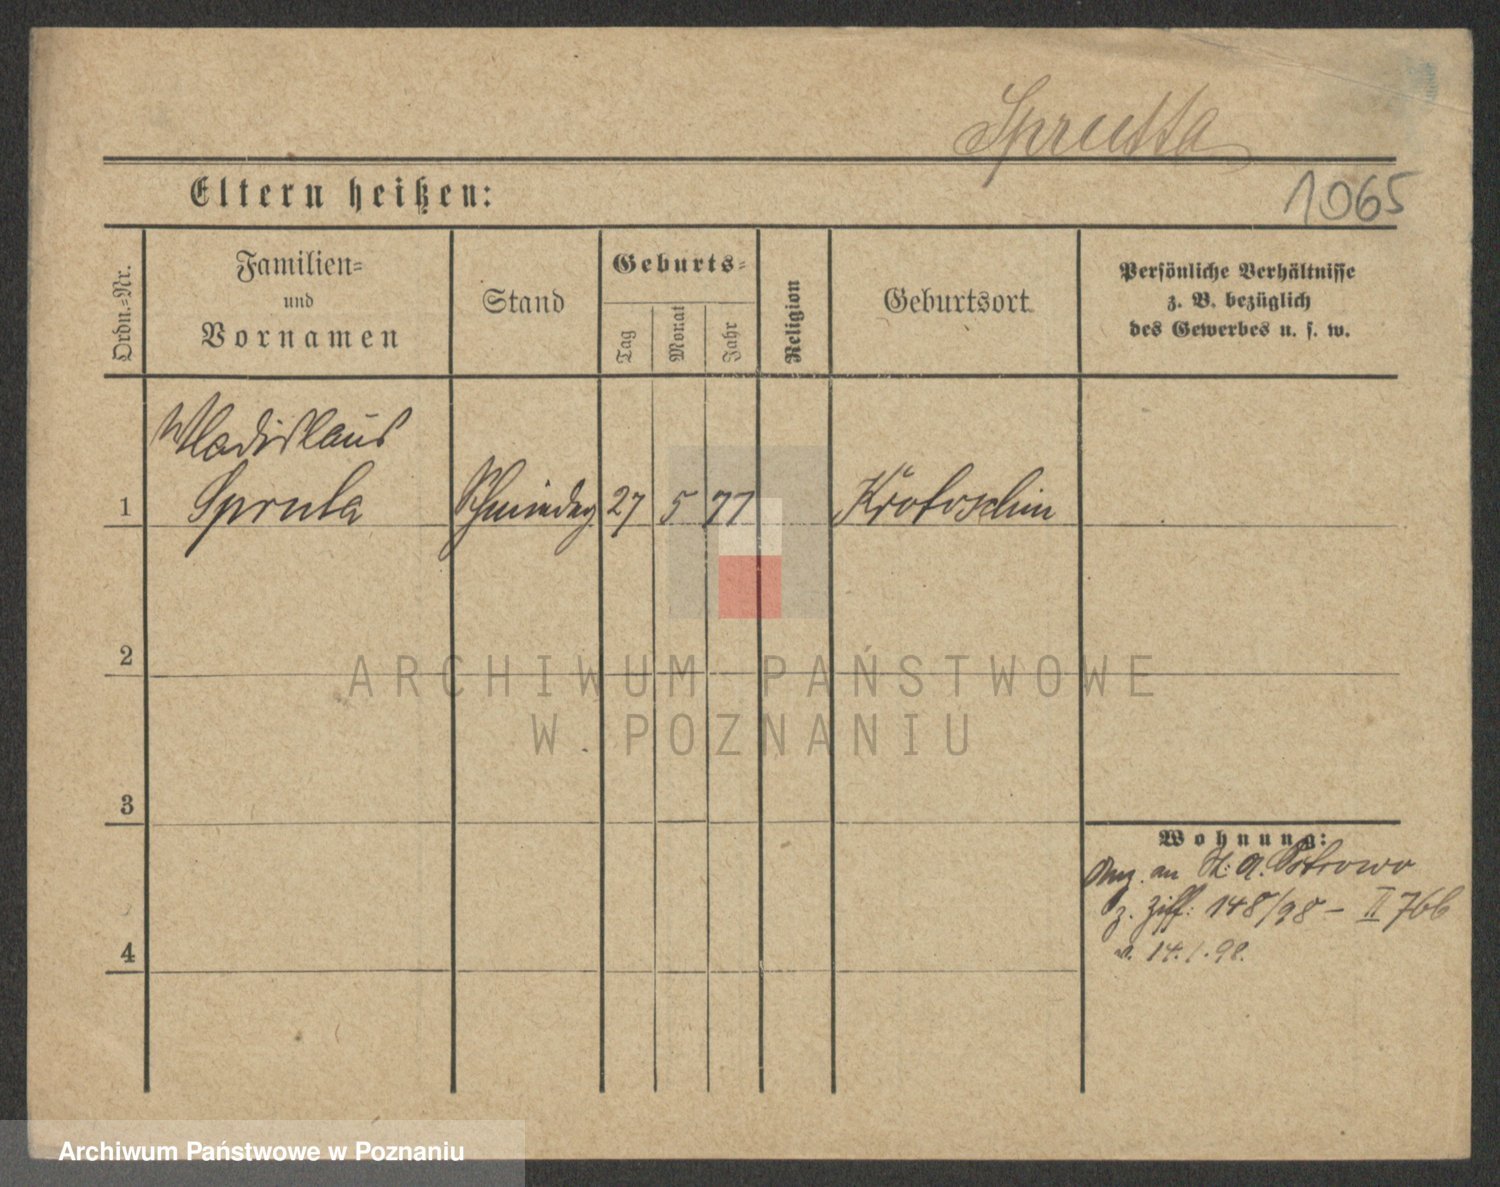 Sprutta
1065
Eltern heißen:
Ordn.=Nr.
Familien=
und
Vornamen
Stand
Geburts=
Tag
Monat
Jahr
Religion
Geburtsort
Persönliche Verhältnisse
z. B. bezüglich
des Gewerbes u. s. w.
Wladislaus
1 Spruta 27 5 77 Krotoschin
2
ARCHIWUM PAŃSTWOWE
W POZNANIU
3
Wohnung:
an St. A. Ostrowo
z. Ziff: 148/98 – II 766
v. 14.1.98.
4
Archiwum Państwowe w Poznaniu